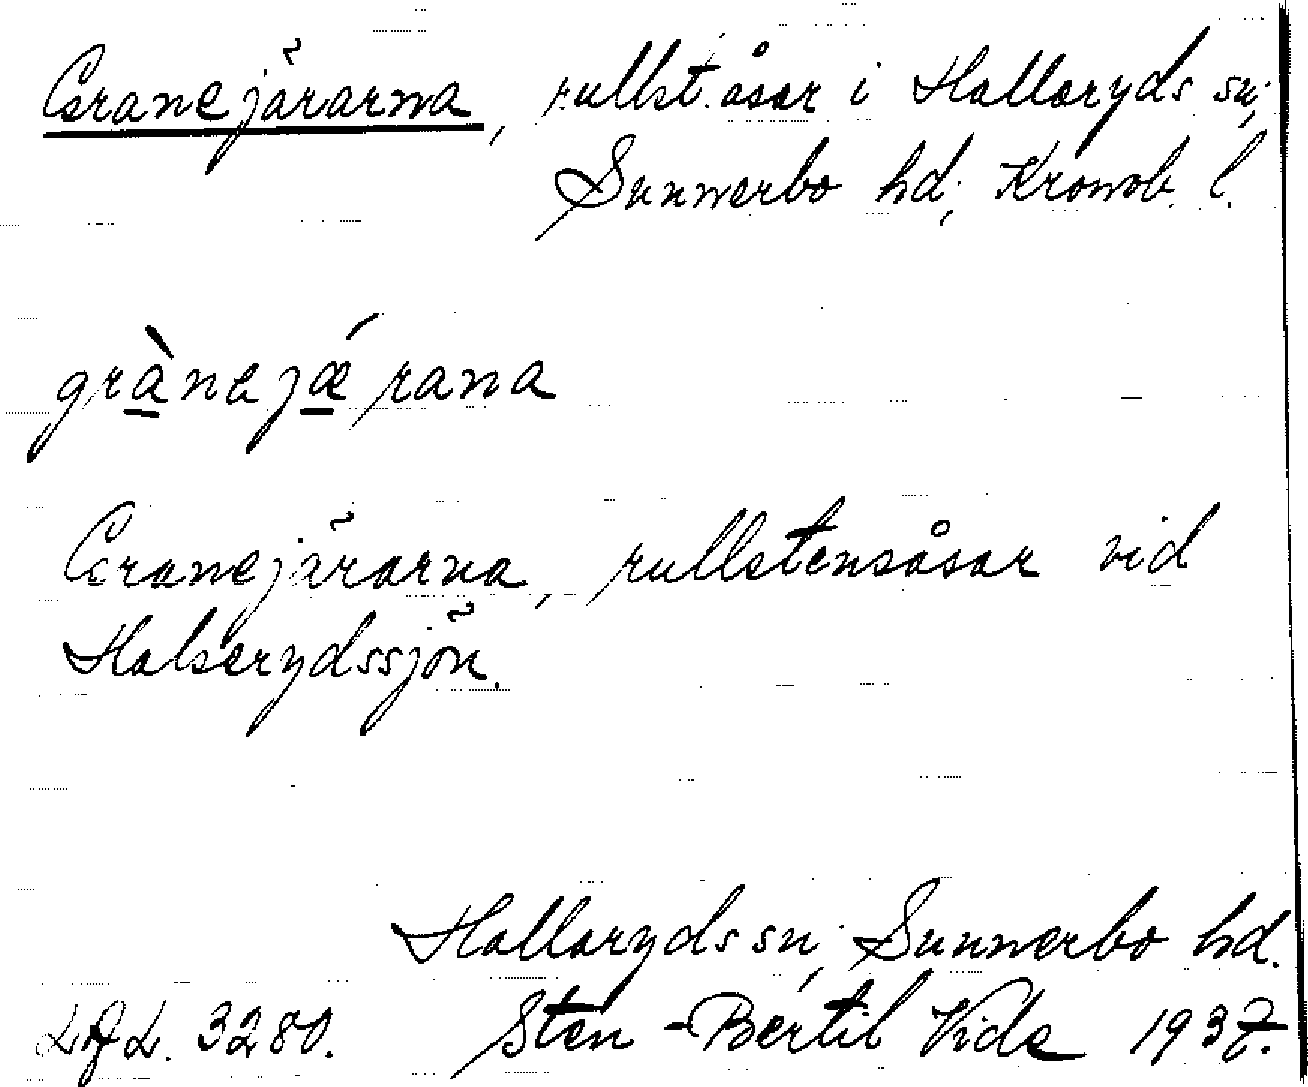 Granejärarna, rullst.åsar i Hallaryds sn;
Sunnerbo hd; Kronob. l.
grànejǽrana
Granejärarna, rullstensåsar vid
Halserydssjön.
Hallaryds sn; Sunnerbo hd.
LAL. 3280. Sten-Bertil Vide 1937.